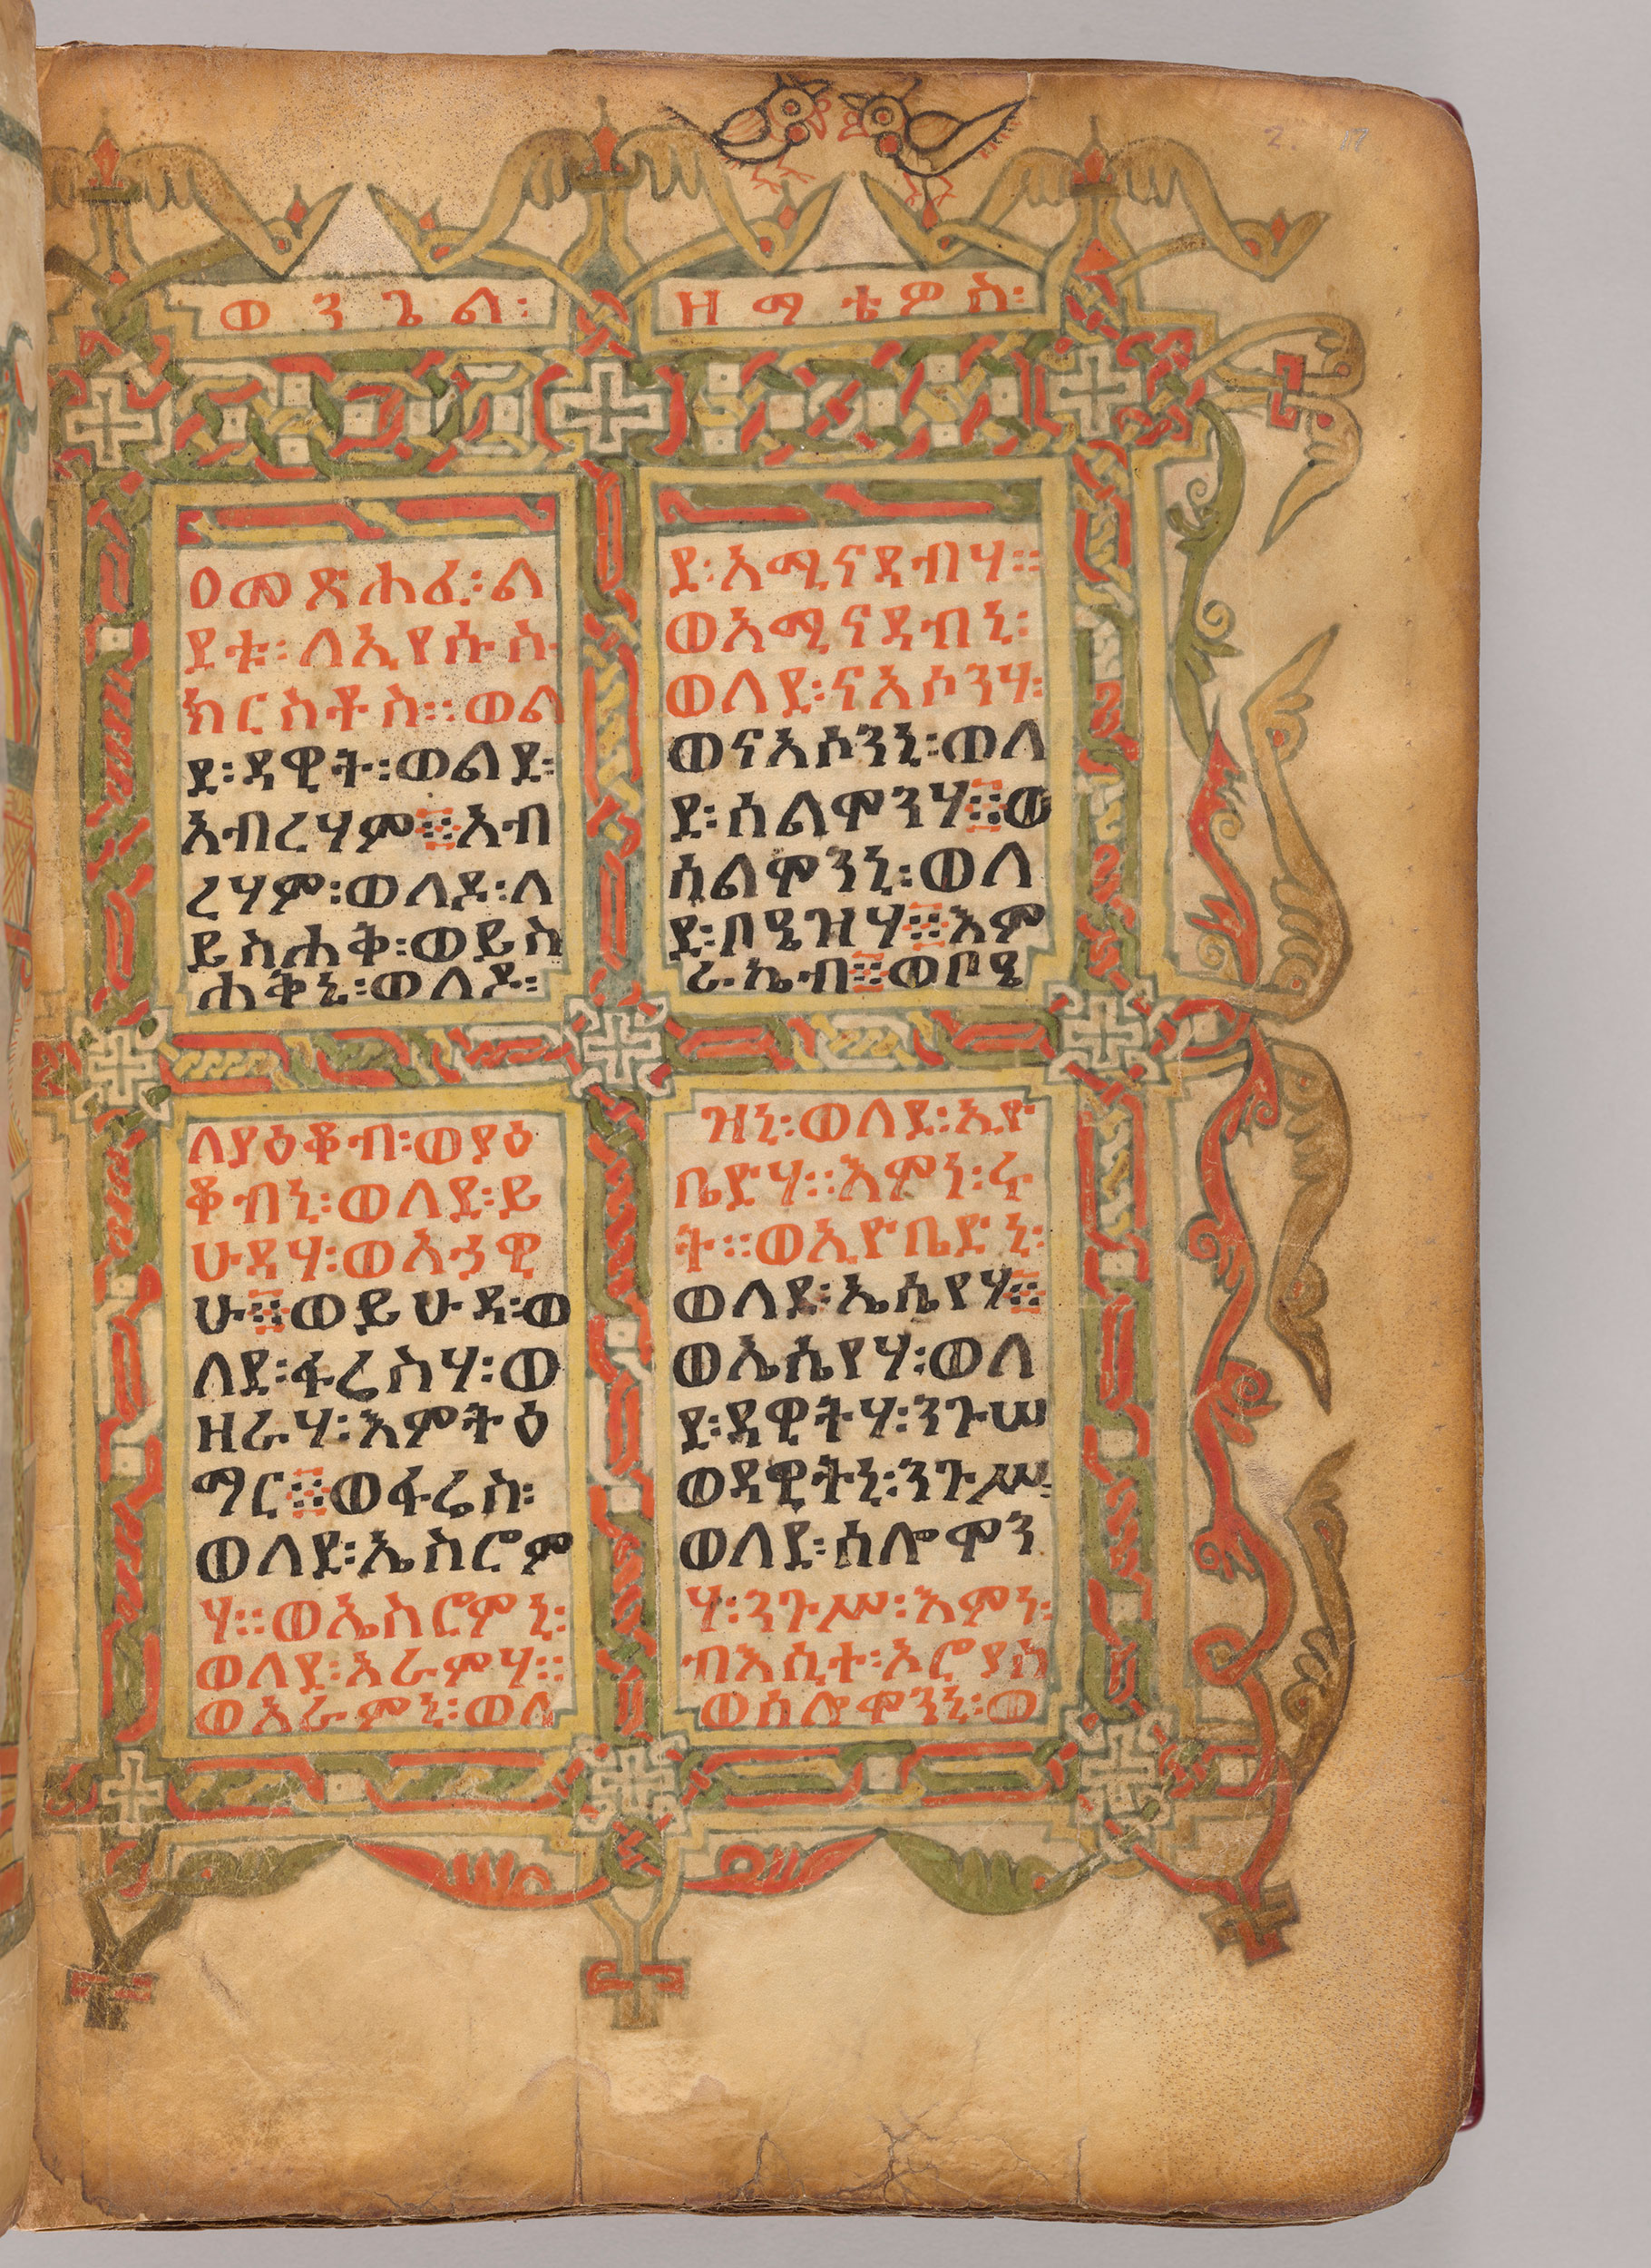 ወንጌል፡
ዘማቴዎስ፡
፩መጽሐፈ፡ል
ደቱ፡ለኢየሱስ
ክርስቶስ፡፡ወል
ደ፡ዳዊት፡ወልደ፡
አብረሃም፨አብ
ረሃም፡ወለዶ፡ለ
ይስሐቅ፡ወይስ
ሐቅኒ፡ወለዶ፡
ለያዕቆብ፡ወያዕ
ቆብኒ፡ወለደ፡ይ
ሁዳሃ፡ወአኃዊ
ሁ፨ወይሁዳ፡ወ
ለደ፡ፋሬስሃ፡ወ
ዘራሃ፡እምትዕ
ማር፨ወፋሬስ፡
ወለደ፡ኤስሮም
ሃ፡፡ወኤስሮምኒ፡
ወለደ፡አራምሃ፡፡
ወአራምኒ፡ወለ
ደ፡አሚናዳብሃ፡፡
ወአሚናዳብኒ፡
ወለደ፡ናአሶንሃ፡
ወናአሶንኒ፡ወለ
ደ፡ሰልሞንሃ፨ወ
ሰልሞንኒ፡ወለ
ደ፡ቦዔዝሃ፨እም
ራኬብ፨ወቦዔ
ዝኒ፡ወለደ፡ኢዮ
ቤድሃ፡፡እምነ፡ሩ
ት፡፡ወኢዮቤድኒ፡
ወለደ፡ኤሴየሃ፨
ወኤሴየሃ፡ወለ
ደ፡ዳዊትሃ፡ንጉሠ
ወዳዊትኒ፡ንጉሥ፡
ወለደ፡ሰሎሞን
ሃ፡ንጉሥ፡እምነ፡
ብእሲተ፡ኦሮያስ
ወሰሎሞንኒ፡ወ